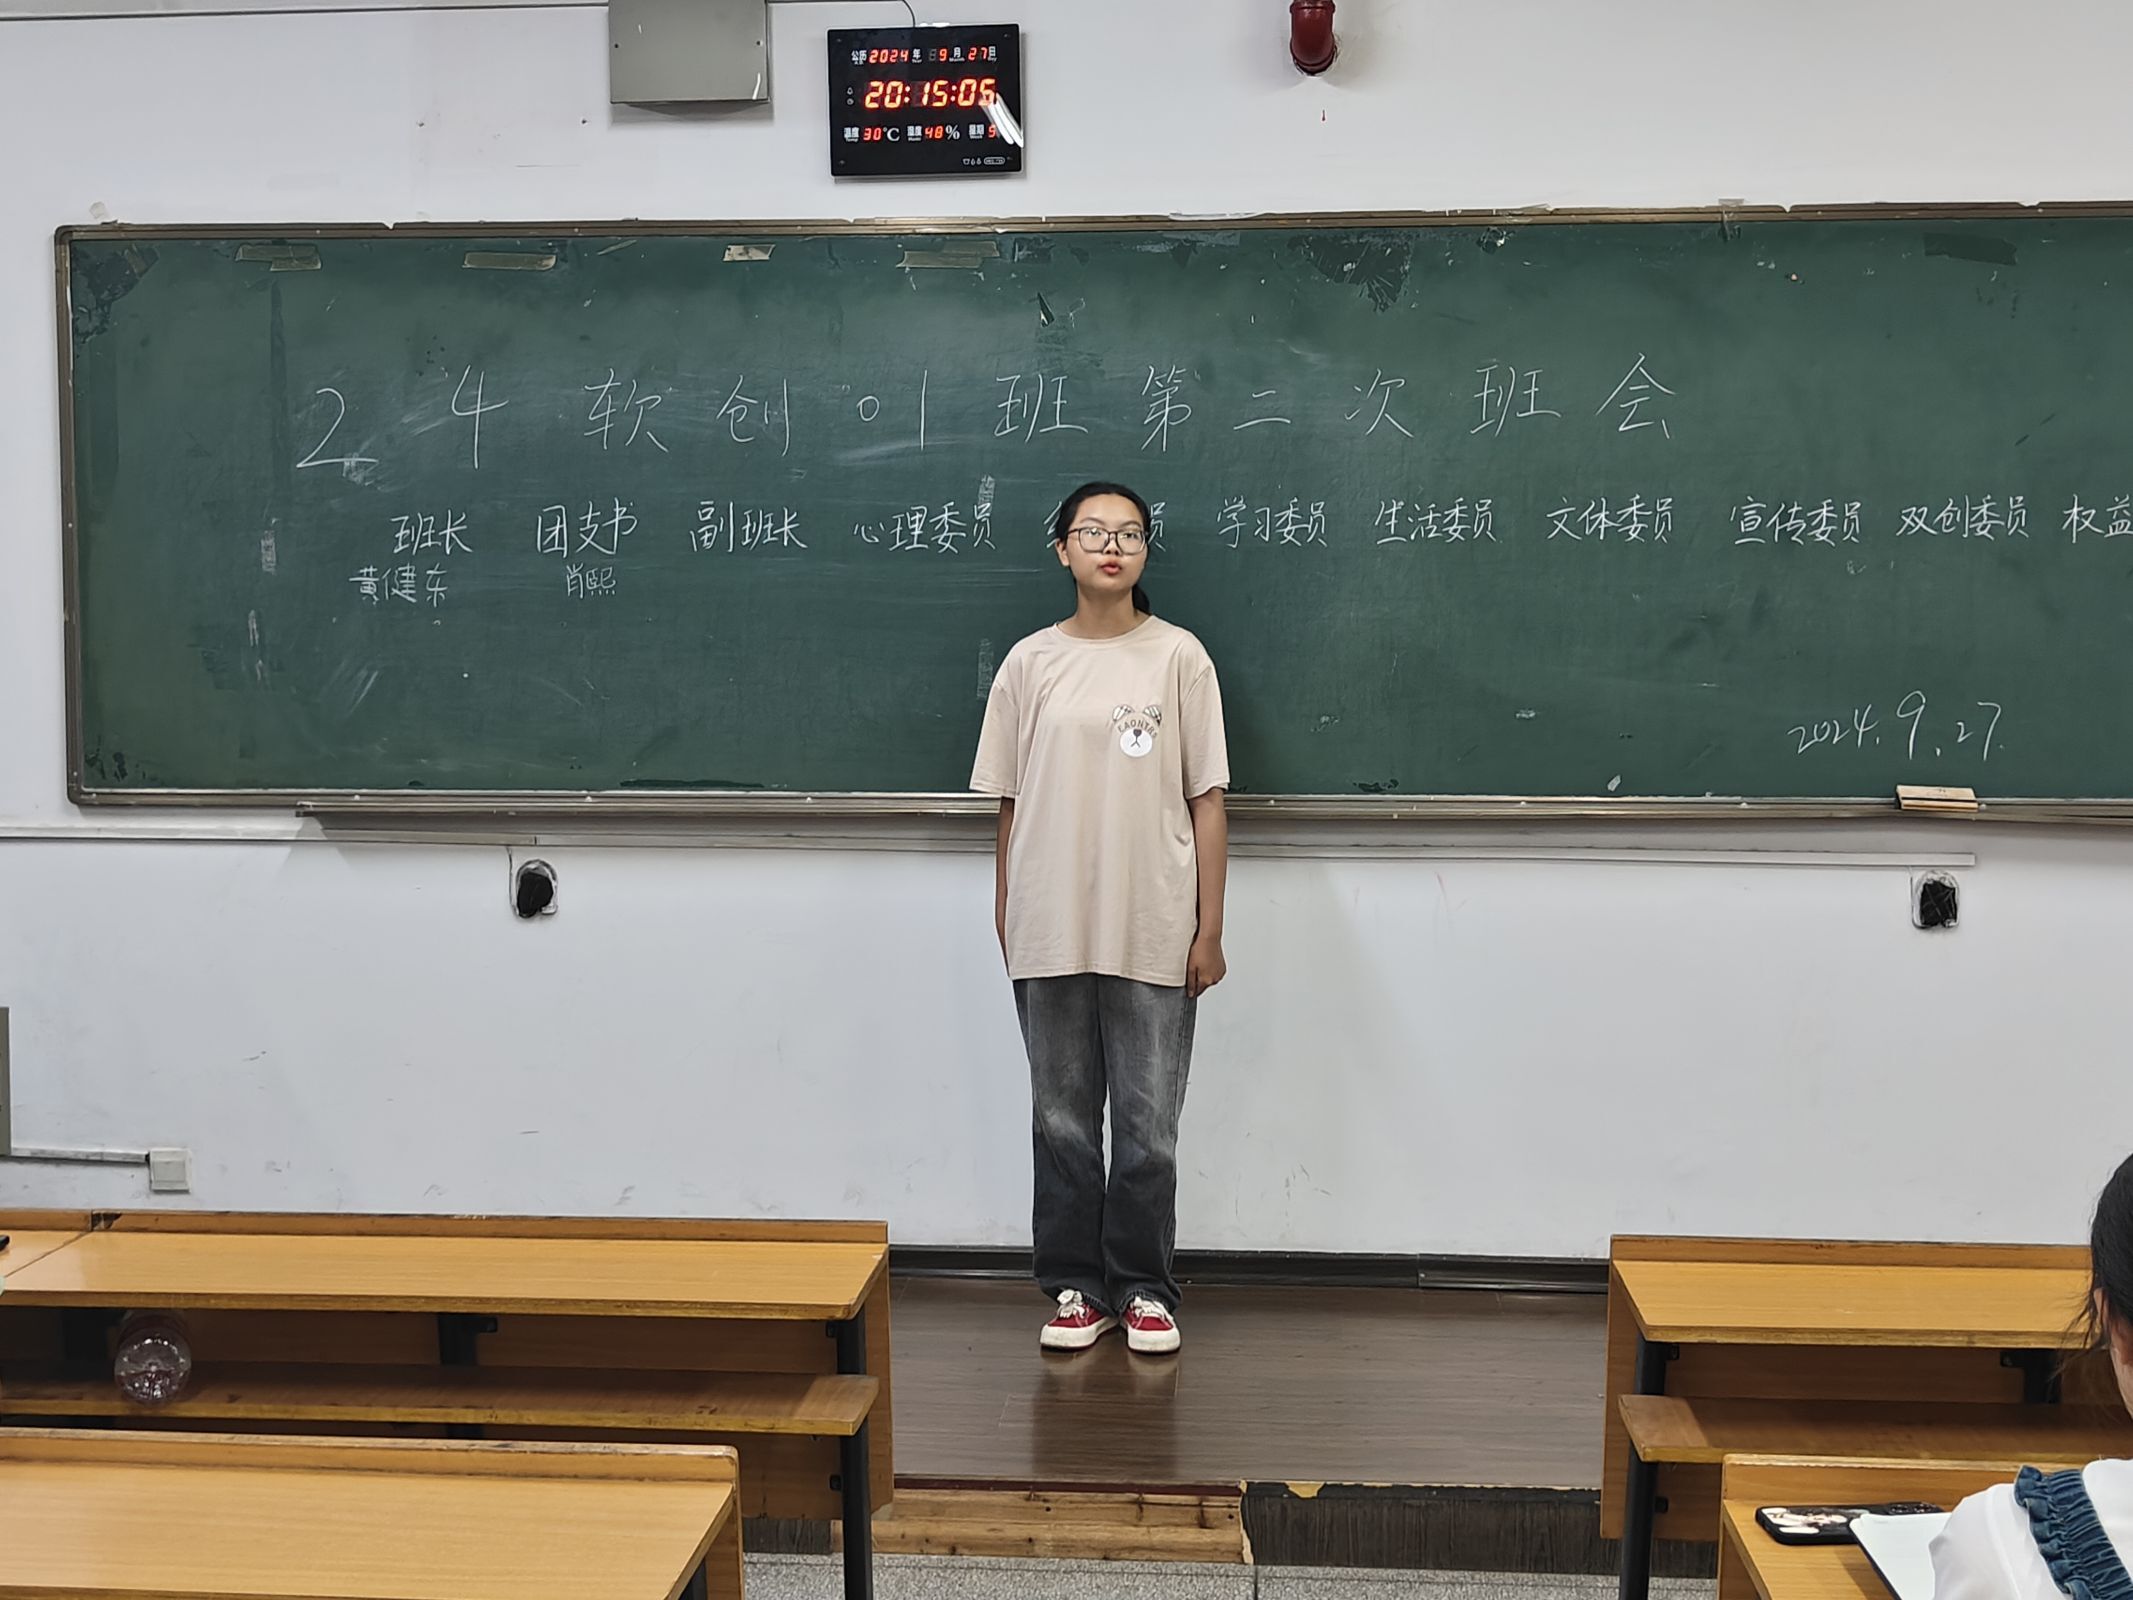 公历 2024 年 9 月 27 日
20:15:05
温度 30℃ 湿度 48% 星期 5
24软创01班第二次班会
班长 团支书 副班长 心理委员 员 学习委员 生活委员 文体委员 宣传委员 双创委员 权益
黄健东 肖熙
2024.9.27.